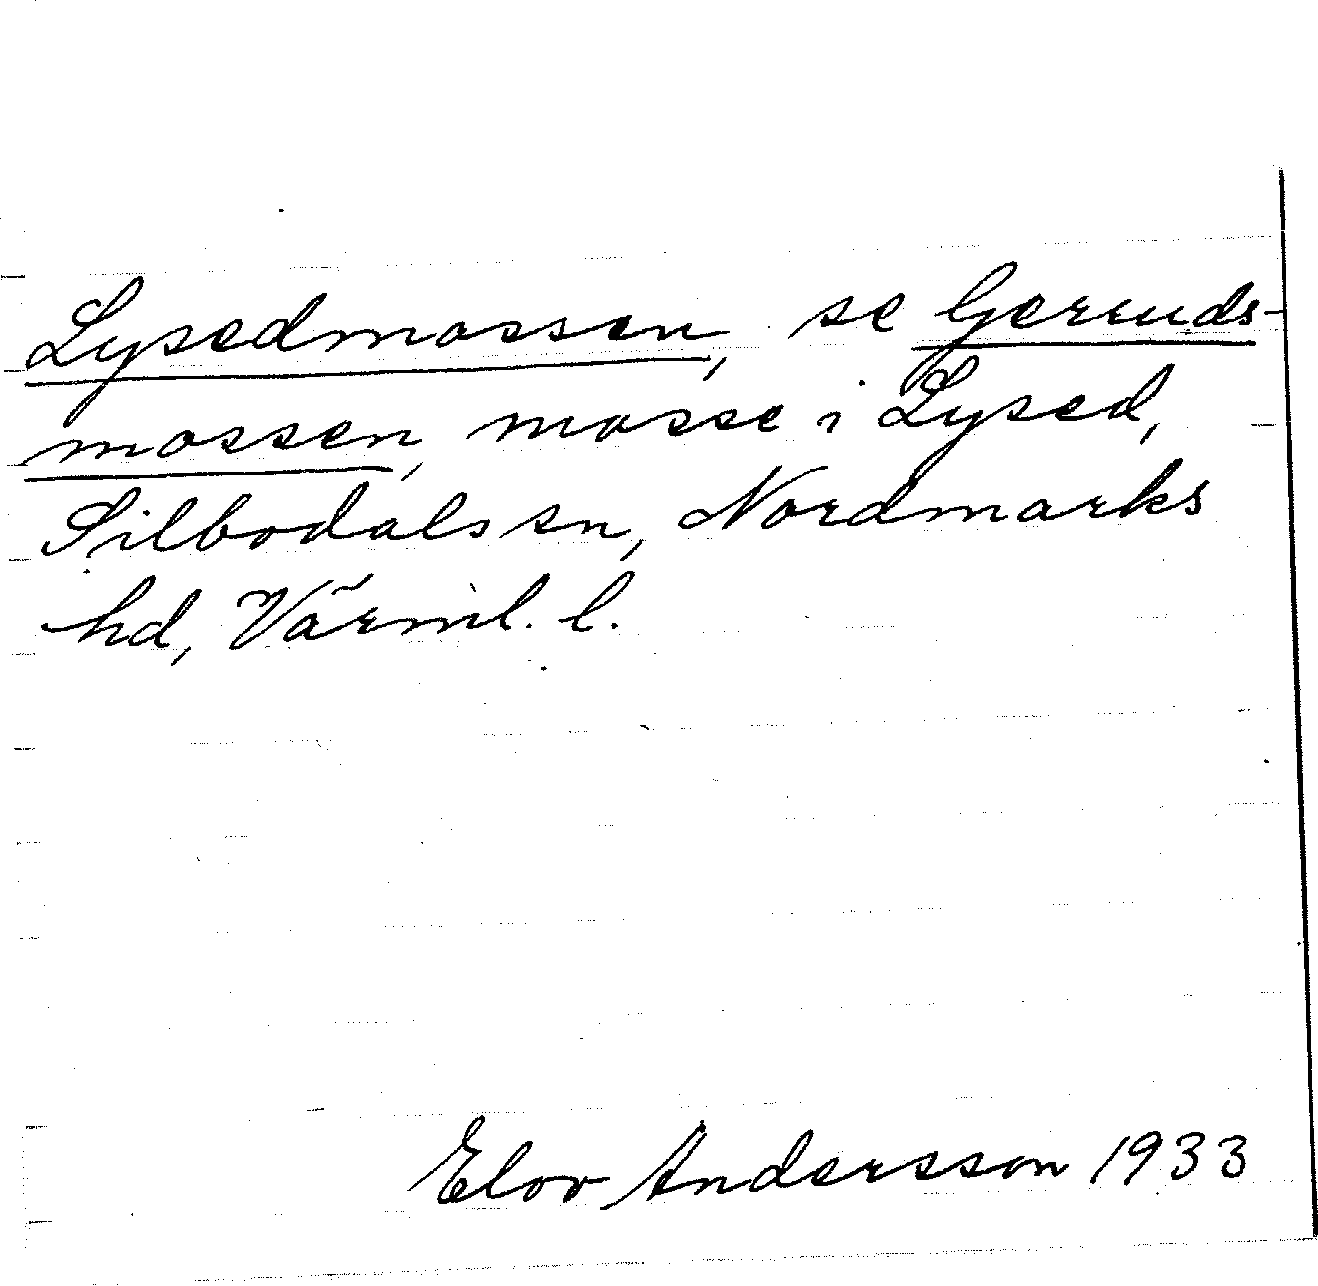 Lysedmossen, se Gerruds-
mossen, mosse i Lysed,
Silbodals sn, Nordmarks
hd, Värml. l.
Elov Andersson 1933